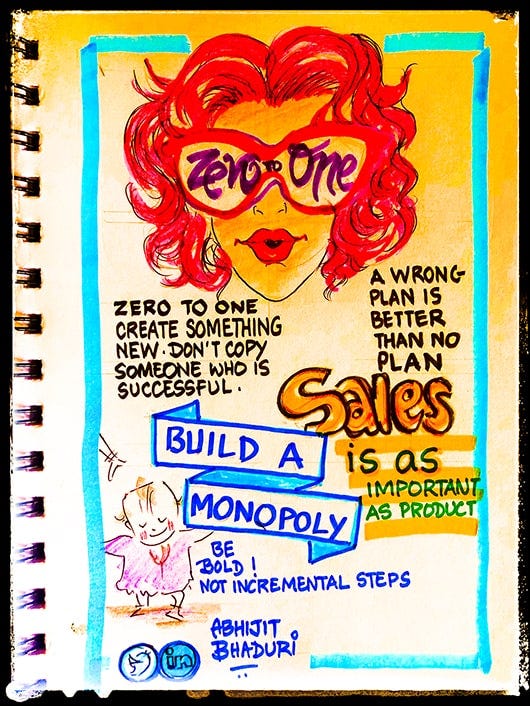 Zero TO One
ZERO TO ONE
CREATE SOMETHING
NEW. DON'T COPY
SOMEONE WHO IS
SUCCESSFUL.
A WRONG
PLAN IS
BETTER
THAN NO
PLAN
Sales
is as
IMPORTANT
AS PRODUCT
BUILD A
MONOPOLY
BE
BOLD!
NOT INCREMENTAL STEPS
ABHIJIT
BHADURI
in